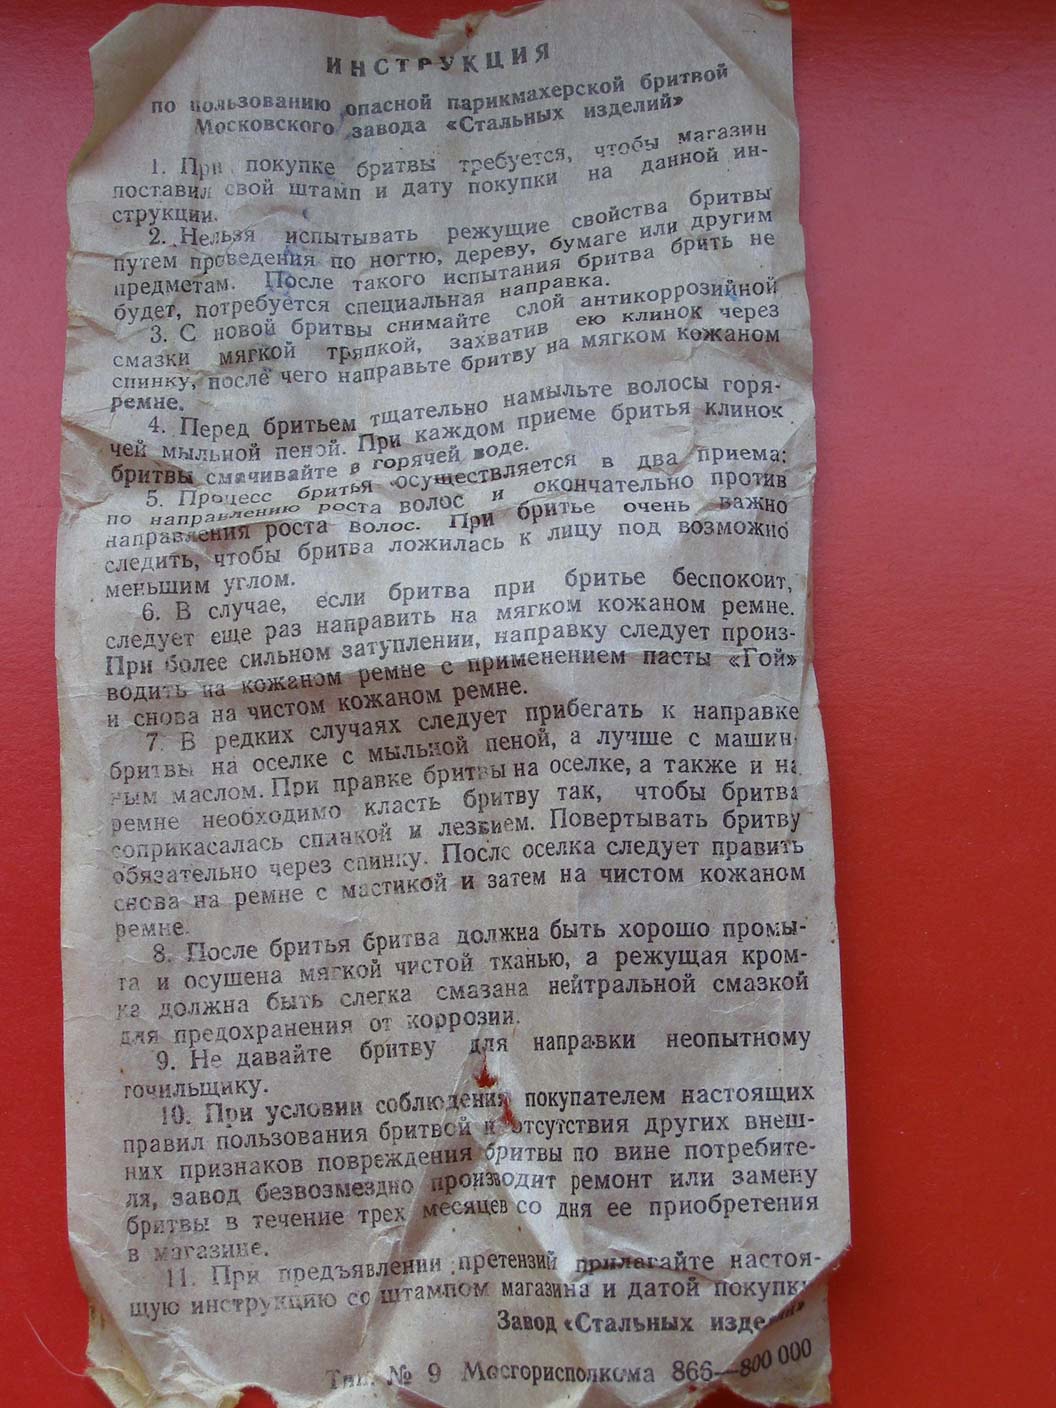 ИНСТРУКЦИЯ
по пользованию опасной парикмахерской бритвой
Московского завода «Стальных изделий»
1. При покупке бритвы требуется, чтобы магазин
поставил свой штамп и дату покупки на данной ин-
струкции.
2. Нельзя испытывать режущие свойства бритвы
путем проведения по ногтю, дереву, бумаге или другим
предметам. После такого испытания бритва брить не
будет, потребуется специальная направка.
3. С новой бритвы снимайте слой антикоррозийной
смазки мягкой тряпкой, захватив ею клинок через
спинку, после чего направьте бритву на мягком кожаном
ремне.
4. Перед бритьем тщательно намыльте волосы горя-
чей мыльной пеной. При каждом приеме бритья клинок
бритвы смачивайте в горячей воде.
5. Процесс бритья осуществляется в два приема:
по направлению роста волос и окончательно против
направления роста волос. При бритье очень важно
следить, чтобы бритва ложилась к лицу под возможно
меньшим углом.
6. В случае, если бритва при бритье беспокоит,
следует еще раз направить на мягком кожаном ремне.
При более сильном затуплении, направку следует произ-
водить на кожаном ремне с применением пасты «Гой»
и снова на чистом кожаном ремне.
7. В редких случаях следует прибегать к направке
бритвы на оселке с мыльной пеной, а лучше с машин-
ным маслом. При правке бритвы на оселке, а также и на
ремне необходимо класть бритву так, чтобы бритва
соприкасалась спинкой и лезвием. Повертывать бритву
обязательно через спинку. После оселка следует править
снова на ремне с мастикой и затем на чистом кожаном
ремне.
8. После бритья бритва должна быть хорошо промы-
та и осушена мягкой чистой тканью, а режущая кром-
ка должна быть слегка смазана нейтральной смазкой
для предохранения от коррозии.
9. Не давайте бритву для направки неопытному
точильщику.
10. При условии соблюдения покупателем настоящих
правил пользования бритвой и отсутствия других внеш-
них признаков повреждения бритвы по вине потребите-
ля, завод безвозмездно производит ремонт или замену
бритвы в течение трех месяцев со дня ее приобретения
в магазине.
11. При предъявлении претензий прилагайте настоя-
щую инструкцию со штампом магазина и датой покупки
Завод «Стальных изделий»
Тип. № 9 Мосгорисполкома 866—800 000